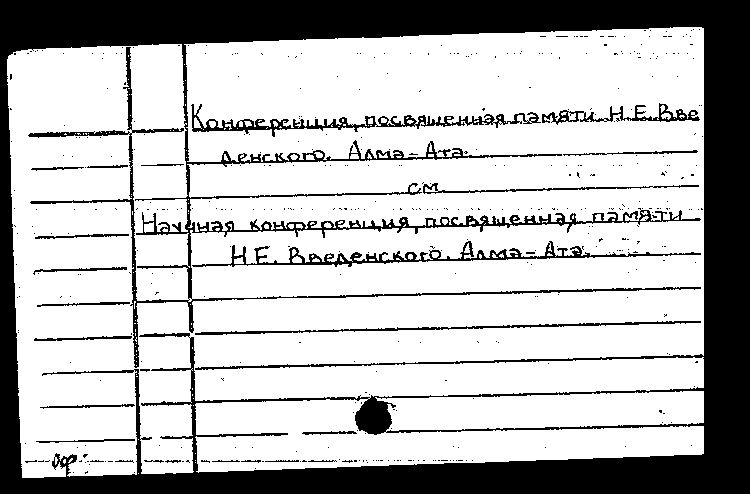 Конференция, посвященная памяти Н.Е. Вве
денского. Алма-Ата.
см
Научная конференция, посвященная памяти
Н.Е. Введенского. Алма-Ата.